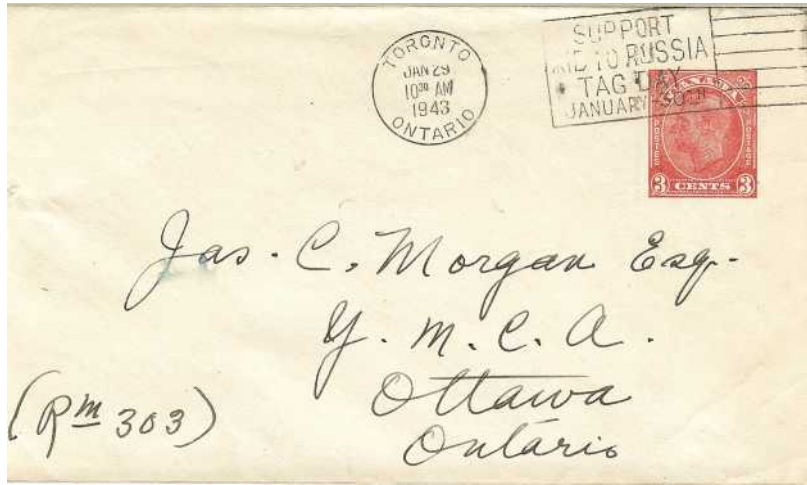 TORONTO
JAN 29
10³⁰ AM
1943
ONTARIO
SUPPORT
AID TO RUSSIA
TAG DAY
JANUARY 30TH
CANADA
POSTES
POSTAGE
3 CENTS 3
Jas. C. Morgan Esq.
Y. M. C. A.
Ottawa
Ontario
(Rm 303)